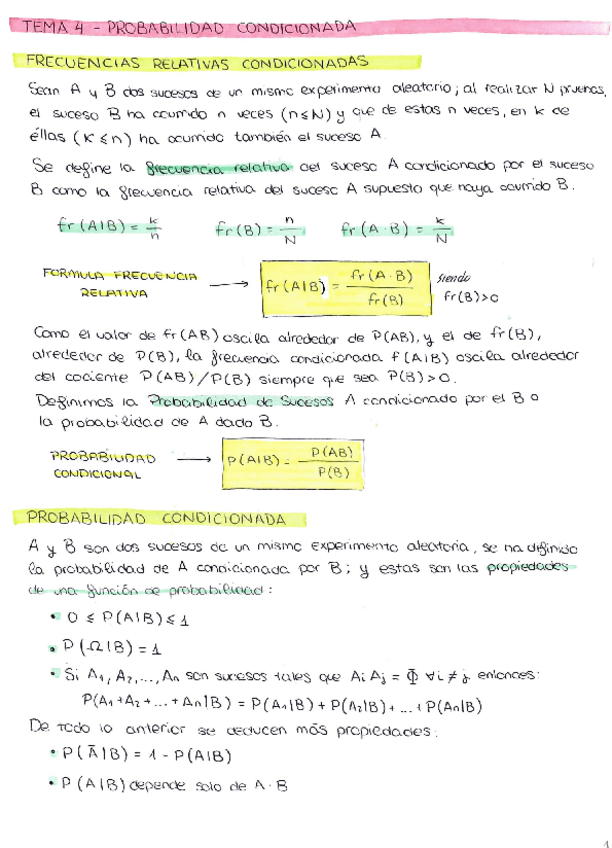 TEMA 4 - PROBABILIDAD CONDICIONADA
FRECUENCIAS RELATIVAS CONDICIONADAS
Sean A y B dos sucesos de un mismo experimento aleatorio; al realizar N pruebas,
el suceso B ha ocurrido n veces (n≤N) y que de estas n veces, en k de
éllas (K ≤ n) ha ocurrido también el suceso A.
Se define la frecuencia relativa del suceso A condicionado por el suceso
B como la frecuencia relativa del suceso A supuesto que haya ocurrido B.
fr (A|B) = k/n fr (B) = n/N fr (A · B) = k/N
FORMULA FRECUENCIA RELATIVA → fr (A|B) = fr (A · B) / fr (B) siendo fr (B) > 0
Como el valor de fr (AB) oscila alrededor de P(AB), y el de fr (B),
alrededor de P(B), la frecuencia condicionada f (A|B) oscila alrededor
del cociente P(AB)/P(B) siempre que sea P(B) > 0.
Definimos la Probabilidad de Sucesos A condicionado por el B o
la probabilidad de A dado B.
PROBABILIDAD CONDICIONAL → P(A|B) = P(AB) / P(B)
PROBABILIDAD CONDICIONADA
A y B son dos sucesos de un mismo experimento aleatorio, se ha definido
la probabilidad de A condicionada por B; y estas son las propiedades
de una función de probabilidad:
• 0 ≤ P(A|B) ≤ 1
• P (Ω|B) = 1
• Si A₁, A₂, ..., An son sucesos tales que Ai Aj = Φ ∀ i ≠ j entonces:
P(A₁ + A₂ + ... + An|B) = P(A₁|B) + P(A₂|B) + ... + P(An|B)
De todo lo anterior se deducen más propiedades:
• P (Ā|B) = 1 - P(A|B)
• P (A|B) depende solo de A · B
1